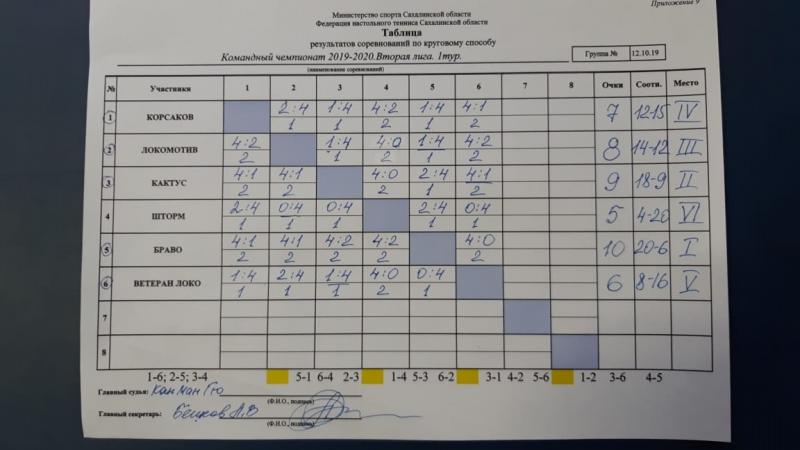 Приложение 9
Министерство спорта Сахалинской области
Федерация настольного тенниса Сахалинской области
Таблица
результатов соревнований по круговому способу
Командный чемпионат 2019-2020.Вторая лига. 1тур. Группа № 12.10.19
(наименование соревнований)
№ Участники 1 2 3 4 5 6 7 8 Очки Соотн. Место
1 КОРСАКОВ 2:4 1:4 4:2 1:4 4:1 7 12-15 IV
1 1 2 1 2
2 ЛОКОМОТИВ 4:2 1:4 4:0 1:4 4:2 8 14-12 III
2 1 2 1 2
3 КАКТУС 4:1 4:1 4:0 2:4 4:1 9 18-9 II
2 2 2 1 2
4 ШТОРМ 2:4 0:4 0:4 2:4 0:4 5 4-20 VI
1 1 1 1 1
5 БРАВО 4:1 4:1 4:2 4:2 4:0 10 20-6 I
2 2 2 2 2
6 ВЕТЕРАН ЛОКО 1:4 2:4 1:4 4:0 0:4 6 8-16 V
1 1 1 2 1
7
8
1-6; 2-5; 3-4 5-1 6-4 2-3 1-4 5-3 6-2 3-1 4-2 5-6 1-2 3-6 4-5
Главный судья: Кан Ман Гю
(Ф.И.О., подпись)
Главный секретарь:
(Ф.И.О., подпись)